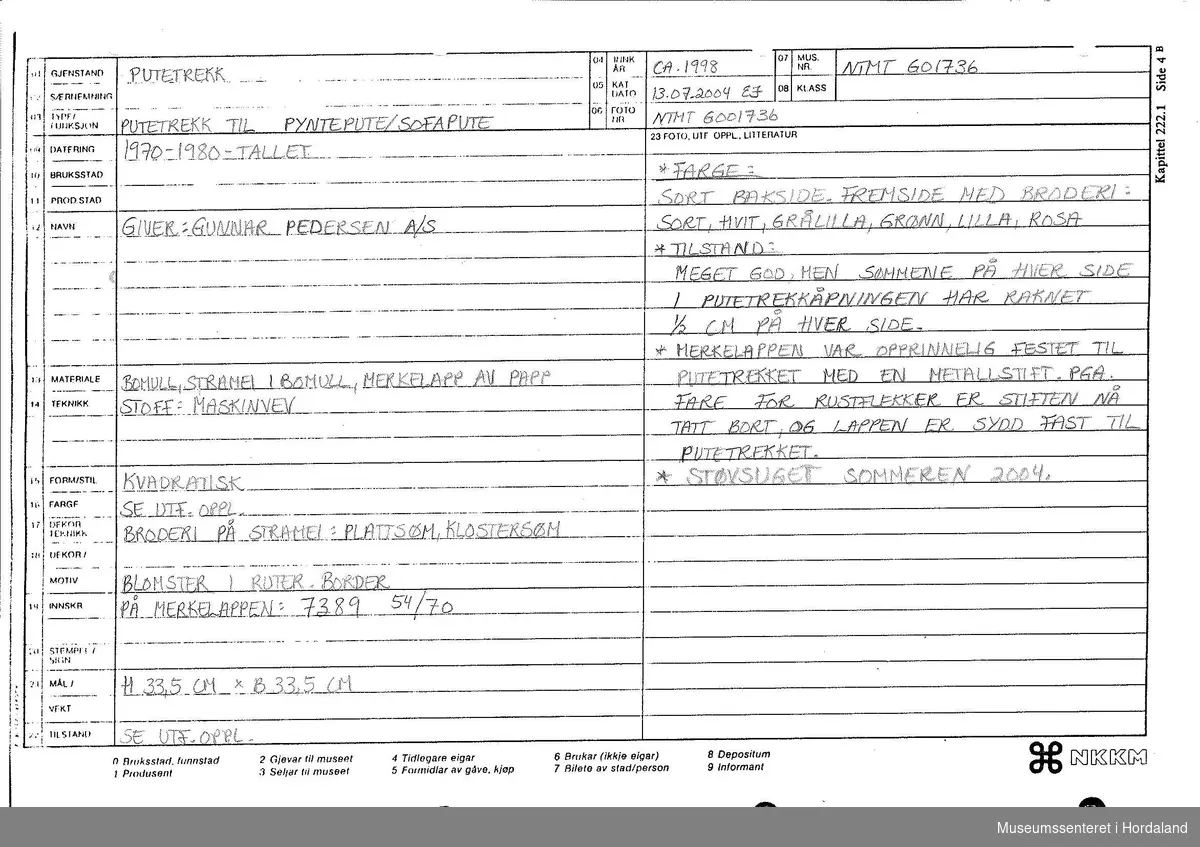 01 GJENSTAND PUTETREKK
SÆRNEMNING
03 TYPE/FUNKSJON PUTETREKK TIL PYNTEPUTE/SOFAPUTE
04 INNK ÅR CA. 1998
05 KAT DATO 13.07.2004 EJ
06 FOTO NR NTMT G001736
07 MUS. NR. NTMT G01736
08 KLASS
09 DATERING 1970-1980-TALLET
10 BRUKSSTAD
11 PROD.STAD
12 NAVN GIVER: GUNNAR PEDERSEN A/S
13 MATERIALE BOMULL, STRAMEI I BOMULL, MERKELAPP AV PAPP
14 TEKNIKK STOFF: MASKINVEV
15 FORM/STIL KVADRATISK
16 FARGE SE UTF. OPPL.
17 DEKOR TEKNIKK BRODERI PÅ STRAMEI: PLATTSØM, KLOSTERSØM
18 DEKOR/
MOTIV BLOMSTER I RUTER. BORDER
19 INNSKR PÅ MERKELAPPEN: 7389 54/70
20 STEMPEL/SIGN
21 MÅL/ H 33,5 CM × B 33,5 CM
VEKT
22 TILSTAND SE UTF. OPPL.
23 FOTO, UTF OPPL, LITTERATUR
* FARGE:
SORT BAKSIDE. FREMSIDE MED BRODERI:
SORT, HVIT, GRÅLILLA, GRØNN, LILLA, ROSA
* TILSTAND:
MEGET GOD, MEN SØMMENE PÅ HVER SIDE
I PUTETREKKÅPNINGEN HAR RAKNET
1/2 CM PÅ HVER SIDE.
* MERKELAPPEN VAR OPPRINNELIG FESTET TIL
PUTETREKKET MED EN METALLSTIFT. PGA.
FARE FOR RUSTFLEKKER ER STIFTEN NÅ
TATT BORT, OG LAPPEN ER SYDD FAST TIL
PUTETREKKET.
* STØVSUGET SOMMEREN 2004.
Kapittel 222.1 Side 4 B
0 Bruksstad, funnstad 2 Gjevar til museet 4 Tidlegare eigar 6 Brukar (ikkje eigar) 8 Depositum
1 Produsent 3 Seljar til museet 5 Formidlar av gåve, kjøp 7 Bilete av stad/person 9 Informant
NKKM
Museumssenteret i Hordaland